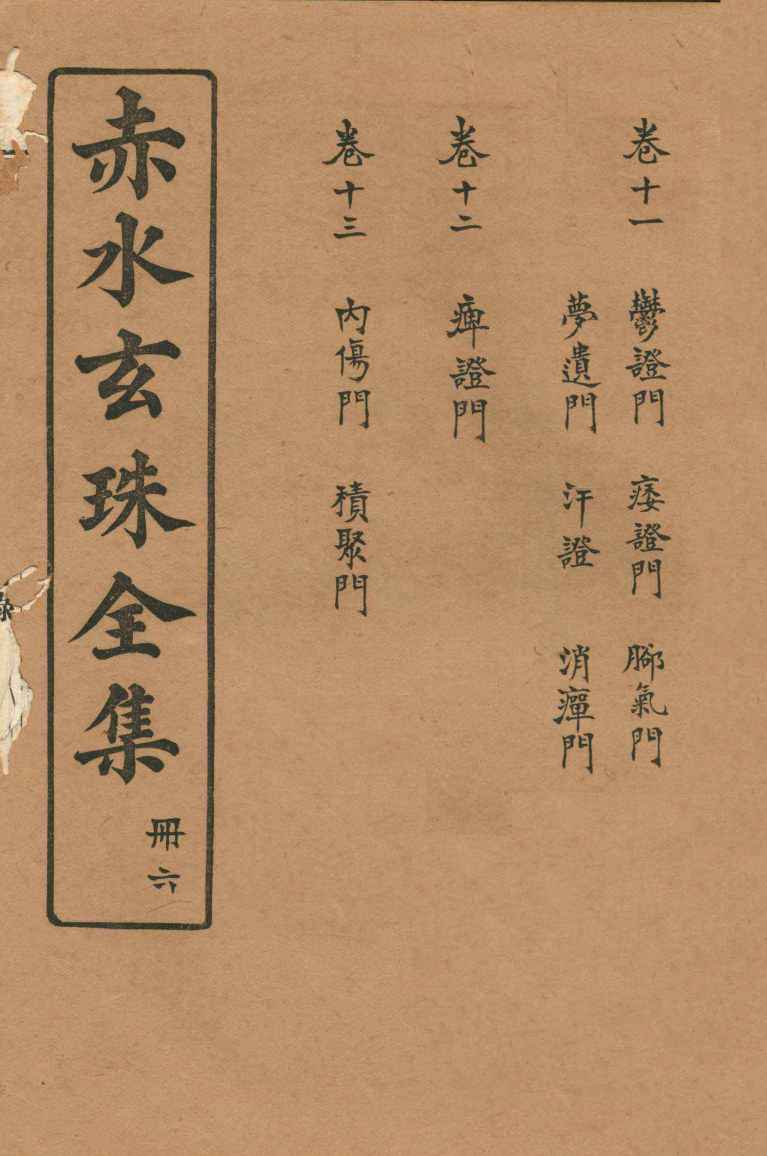 卷十一 鬱證門 痿證門 腳氣門
夢遺門 汗證 消癉門
卷十二 痺證門
卷十三 內傷門 積聚門
赤水玄珠全集 冊六